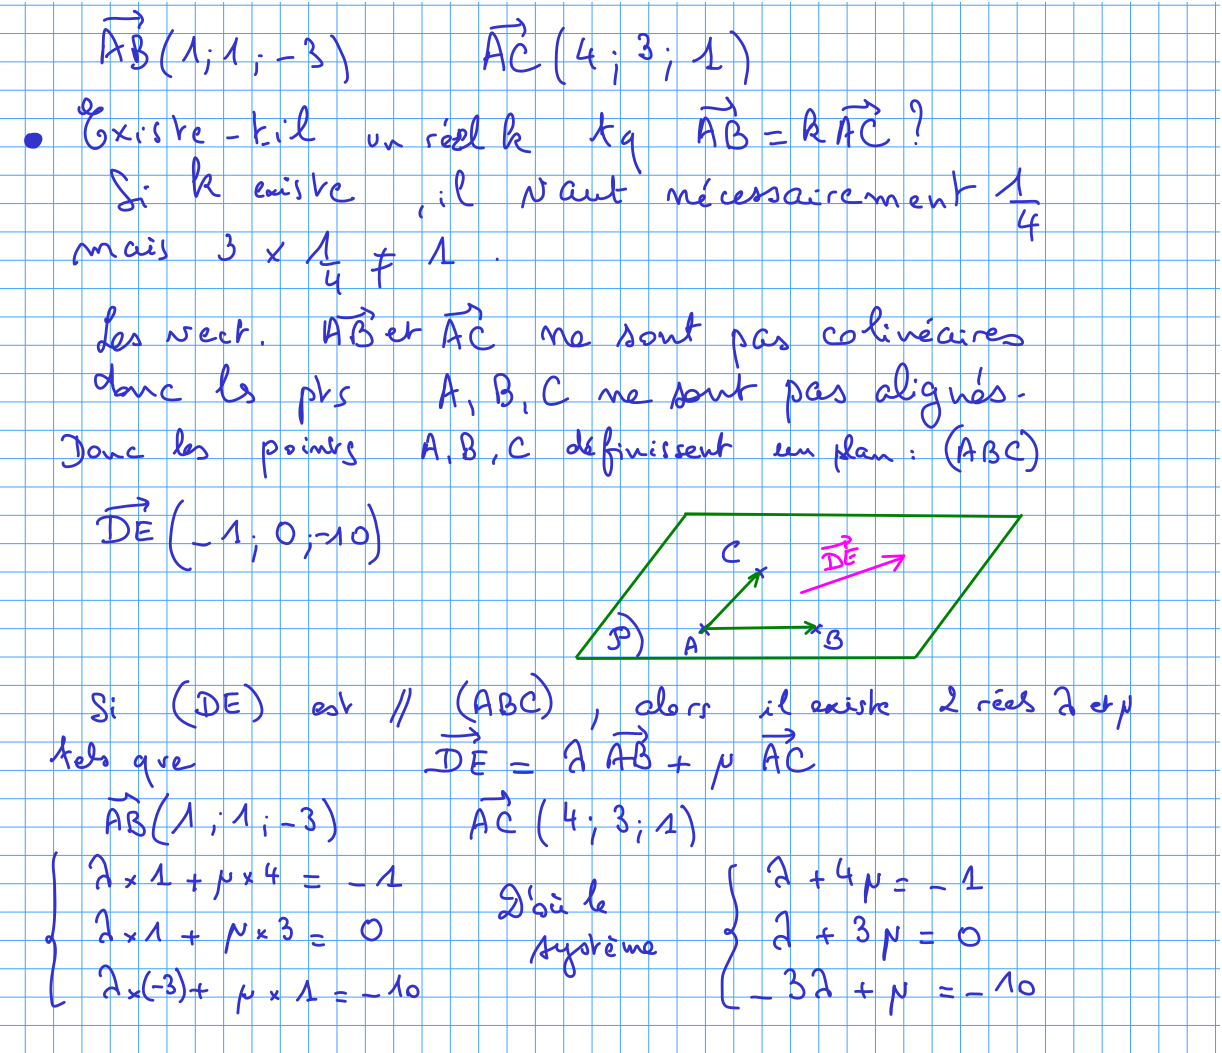 AB(1;1;-3) AC(4;3;1)
• Existe-t-il un réel k tq AB = k AC ?
Si k existe, il vaut nécessairement 1/4
mais 3 × 1/4 ≠ 1.
Les vect. AB et AC ne sont pas colinéaires
donc les pts A, B, C ne sont pas alignés.
Donc les points A, B, C définissent un plan : (ABC)
DE(-1; 0; -10)
C DE
P A B
Si (DE) est // (ABC), alors il existe 2 réels λ et μ
tels que DE = λ AB + μ AC
AB(1;1;-3) AC(4;3;1)
λ×1 + μ×4 = -1
λ×1 + μ×3 = 0
λ×(-3) + μ×1 = -10
D'où le
système
λ + 4μ = -1
λ + 3μ = 0
-3λ + μ = -10